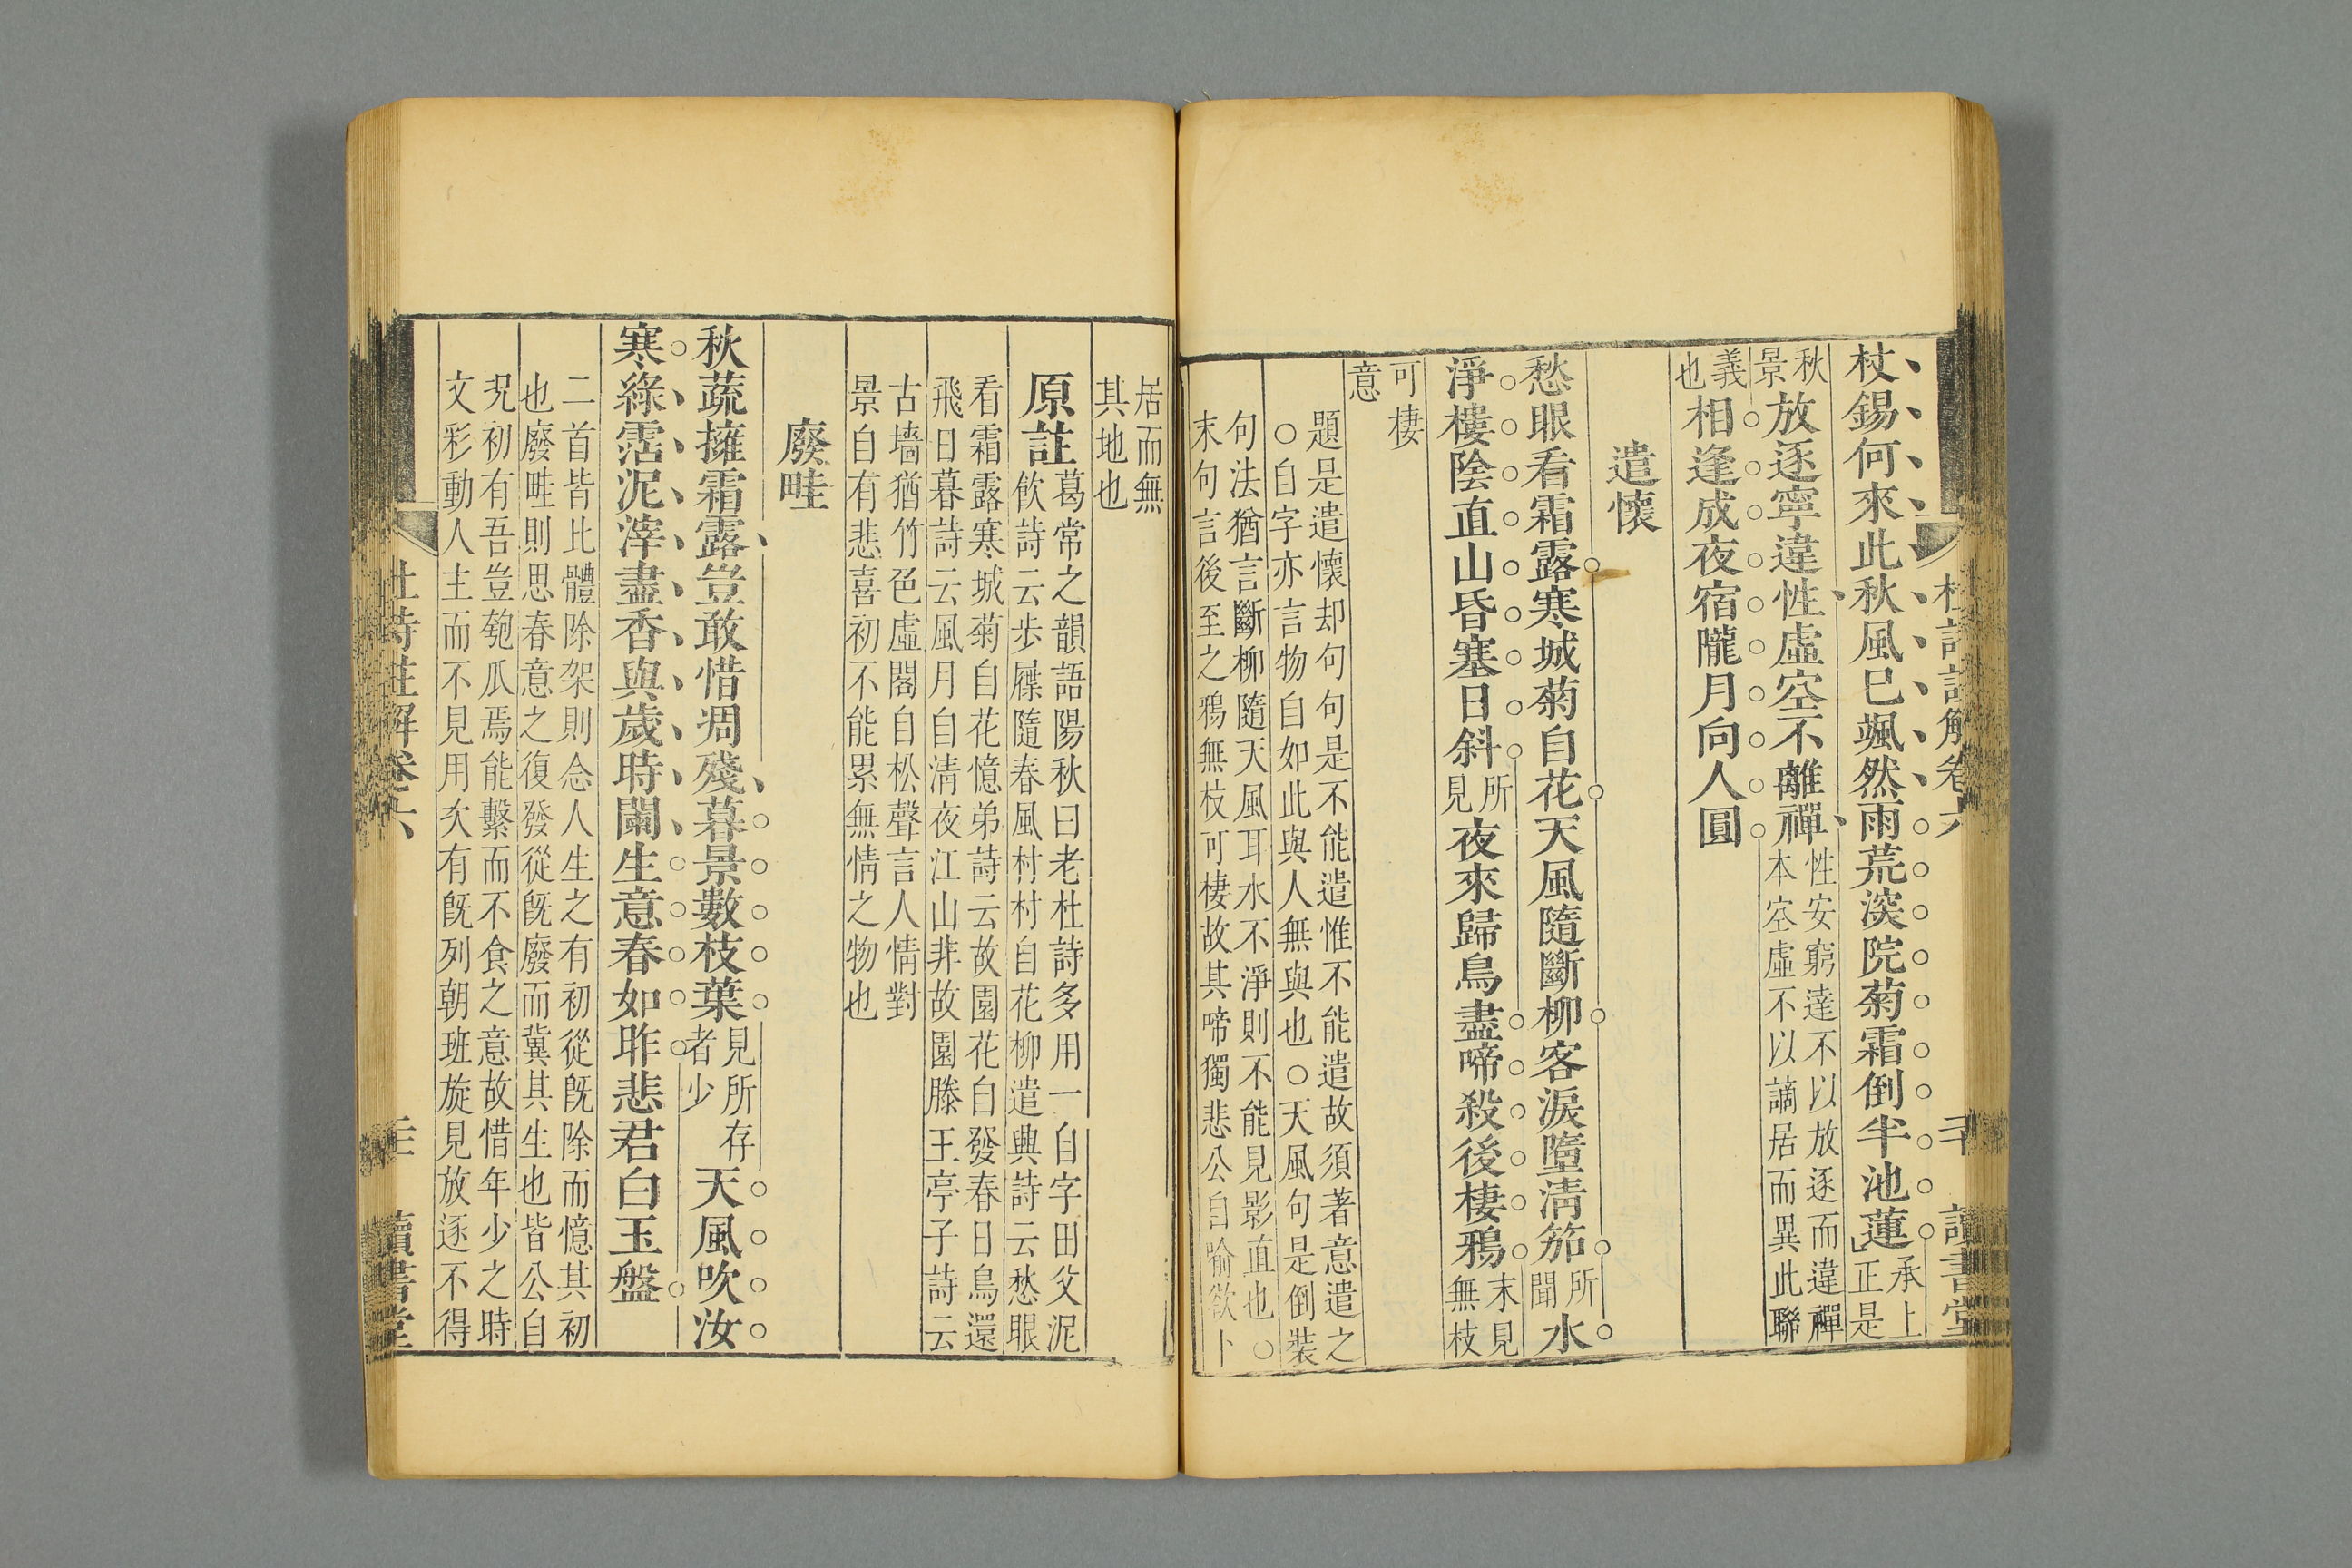 杖錫何來此秋風已颯然雨荒深院菊霜倒半池蓮承上正是
秋景放逐寧違性虛空不離禪性安窮達不以放逐而違禪本空虛不以謫居而異此聯
義也相逢成夜宿隴月向人圓
遣懷
愁眼看霜露寒城菊自花天風隨斷柳客淚墮淸笳所聞水
淨樓陰直山昏塞日斜所見夜來歸鳥盡啼殺後棲鴉末見無枝
可棲意
題是遣懷却句句是不能遣惟不能遣故須著意遣之
○自字亦言物自如此與人無與也○天風句是倒裝
句法猶言斷柳隨天風耳水不淨則不能見影直也○
末句言後至之鴉無枝可棲故其啼獨悲公自喻欲卜
杜詩註解卷六 二十 讀書堂
居而無
其地也
原註葛常之韻語陽秋曰老杜詩多用一自字田父泥
飲詩云步屧隨春風村村自花柳遣興詩云愁眼
看霜露寒城菊自花憶弟詩云故園花自發春日鳥還
飛日暮詩云風月自淸夜江山非故園滕王亭子詩云
古墻猶竹色虛閣自松聲言人情對
景自有悲喜初不能累無情之物也
廢畦
秋蔬擁霜露豈敢惜凋殘暮景數枝葉見所存者少天風吹汝
寒綠霑泥滓盡香與歲時闌生意春如昨悲君白玉盤
二首皆比體除架則念人生之有初從旣除而憶其初
也廢畦則思春意之復發從旣廢而冀其生也皆公自
況初有吾豈匏瓜焉能繫而不食之意故惜年少之時
文彩動人主而不見用次有旣列朝班旋見放逐不得
杜詩註解卷六 讀書堂